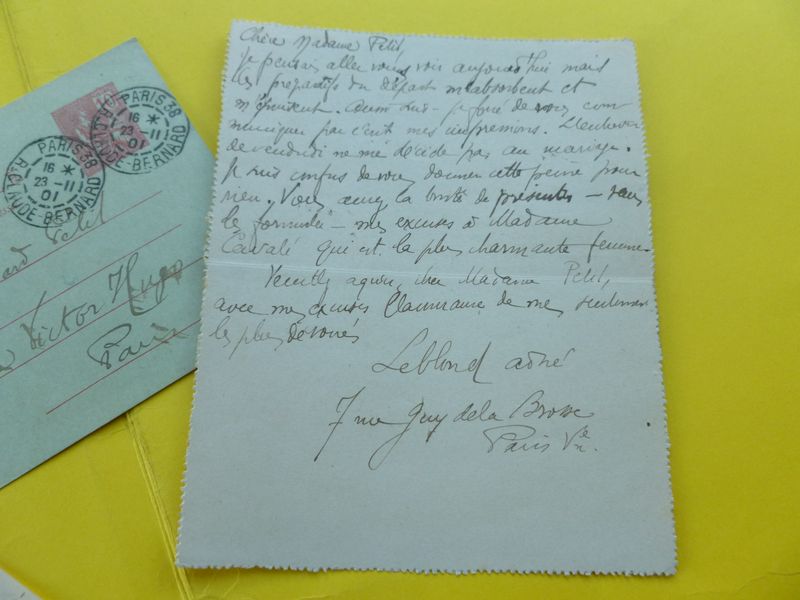 PARIS 38
16 *
23 -11
01
R. CLAUDE-BERNARD
PARIS 38
16 *
23 -11
01
R. CLAUDE-BERNARD
Petit
Victor Hugo
Paris
Chère Madame Petit,
Je pensais aller vous voir aujourd'hui mais
les préparatifs du départ m'absorbent et
m'épuisent. Aussi suis-je forcé de vous com
muniquer par écrit mes impressions. L'entrevue
de vendredi ne me décide pas au mariage.
Je suis confus de vous donner cette peine pour
rien. Vous aurez la bonté de présenter - sans
le formuler - mes excuses à Madame
Cavalé qui est la plus charmante femme.
Veuillez agréer, chère Madame Petit,
avec mes excuses l'assurance de mes sentiments
les plus dévoués
Leblond
7 rue Guy de la Brosse
Paris Ve